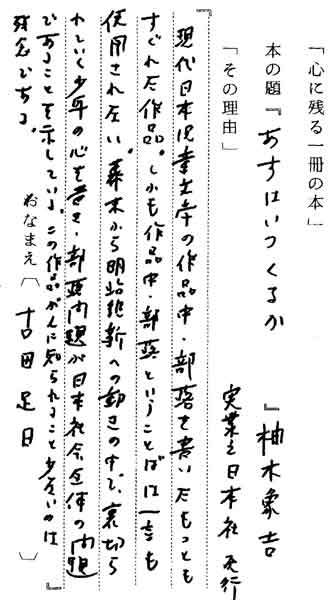 「心に残る一冊の本」
本の題『あすはいつくるか』柚木象吉
実業之日本社発行
「その理由」
『現代日本児童文学の作品中・部落を書いたもっとも
すぐれた作品。しかも作品中・部落ということばは一言も
使用されない。幕末から明治維新への動きの中で、裏切ら
れていく少年の心を書き・部落問題が日本社会全体の問題
であることを示している。この作品が人に知られること少ないのは
残念である。』
おなまえ〔古田足日〕